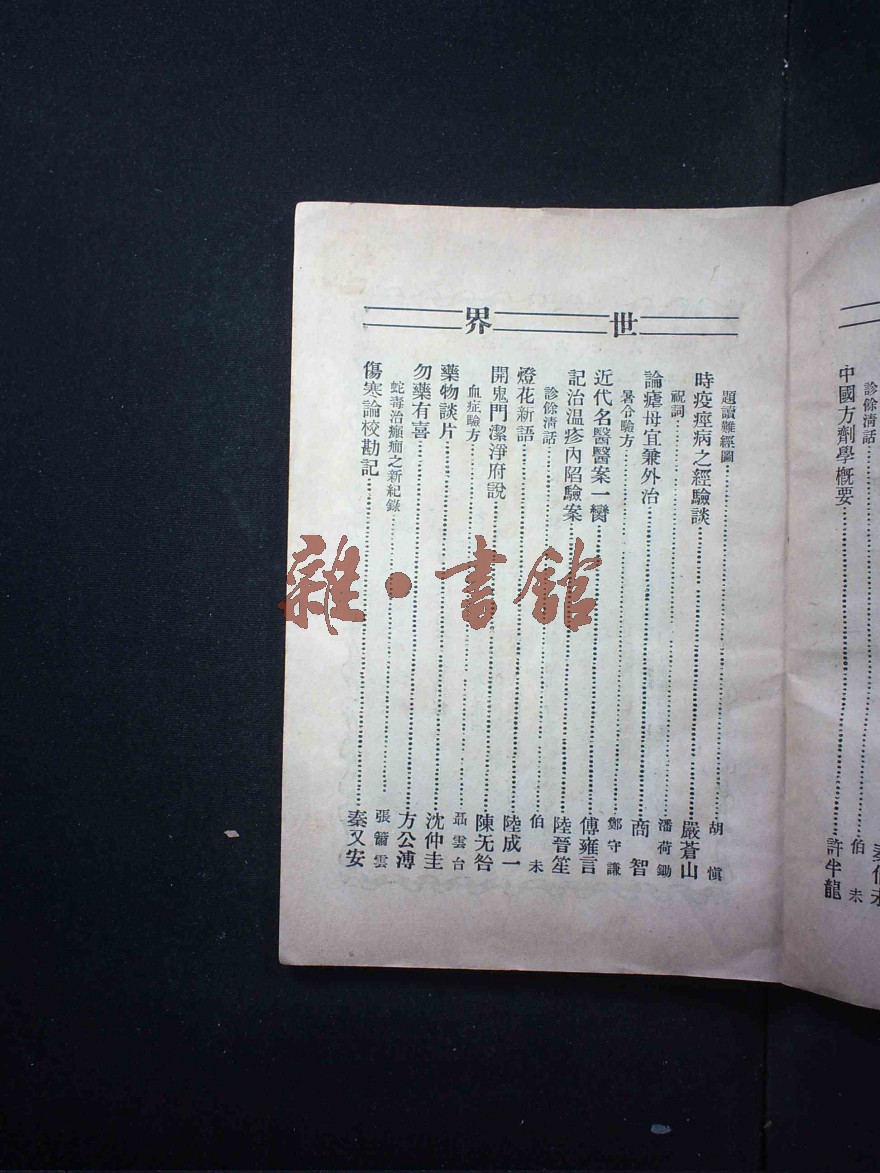 診餘清話……伯未
中國方劑學概要……許半龍
世界
題讀難經圖……胡愼
時疫痙病之經驗談……嚴蒼山
祝詞……潘荷鋤
論瘧母宜兼外治……商智
暑令驗方……鄭守謙
近代名醫醫案一臠……傅雍言
記治温疹內陷驗案……陸晉笙
診餘清話……伯未
燈花新語……陸成一
開鬼門潔淨府說……陳无咎
血症驗方……聶雲台
藥物談片……沈仲圭
勿藥有喜……方公溥
蛇毒治癲癎之新紀錄……張簫雲
傷寒論校勘記……秦又安
雜·書館